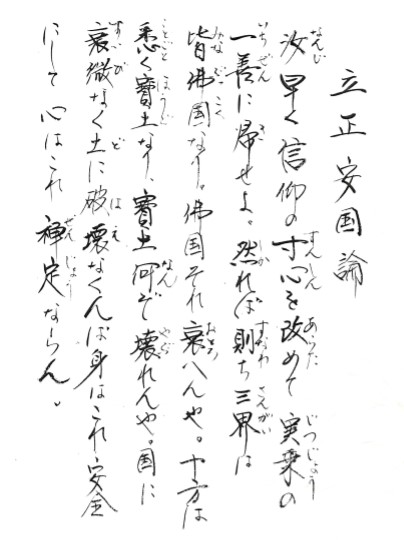 立正安国論
汝早く信仰の寸心を改めて実乗の
一善に帰せよ。然れば則ち三界は
皆佛国なり。佛国それ衰へんや。十方は
悉く寶土なり、寶土何ぞ壊れんや。国に
衰微なく土に破壊なくんば身はこれ安全
にして心はこれ禅定ならん。